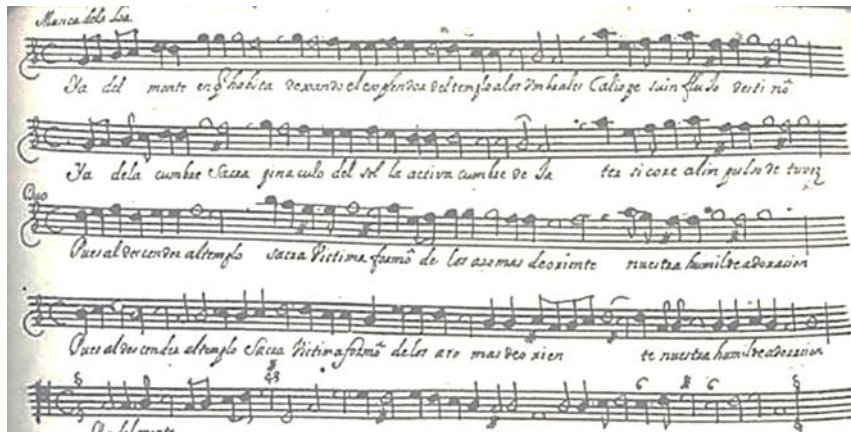 Musica dela Loa
Ya del monte en q̃ habita dexando el esplendor del templo a los Umbrales Caliope su influxo destinò
Ya dela cumbre Sacra pinaculo del sol la activa cumbre de Ja ter si core al in pulso de tu voz
Duo
Pues al descender al templo sacra Victima formò de los aromas de oriente nuestra humilde adoracion
Pues al descender al templo Sacra Victima formò de los aro mas de o rien te nuestra humilde adoracion
Ya del monte